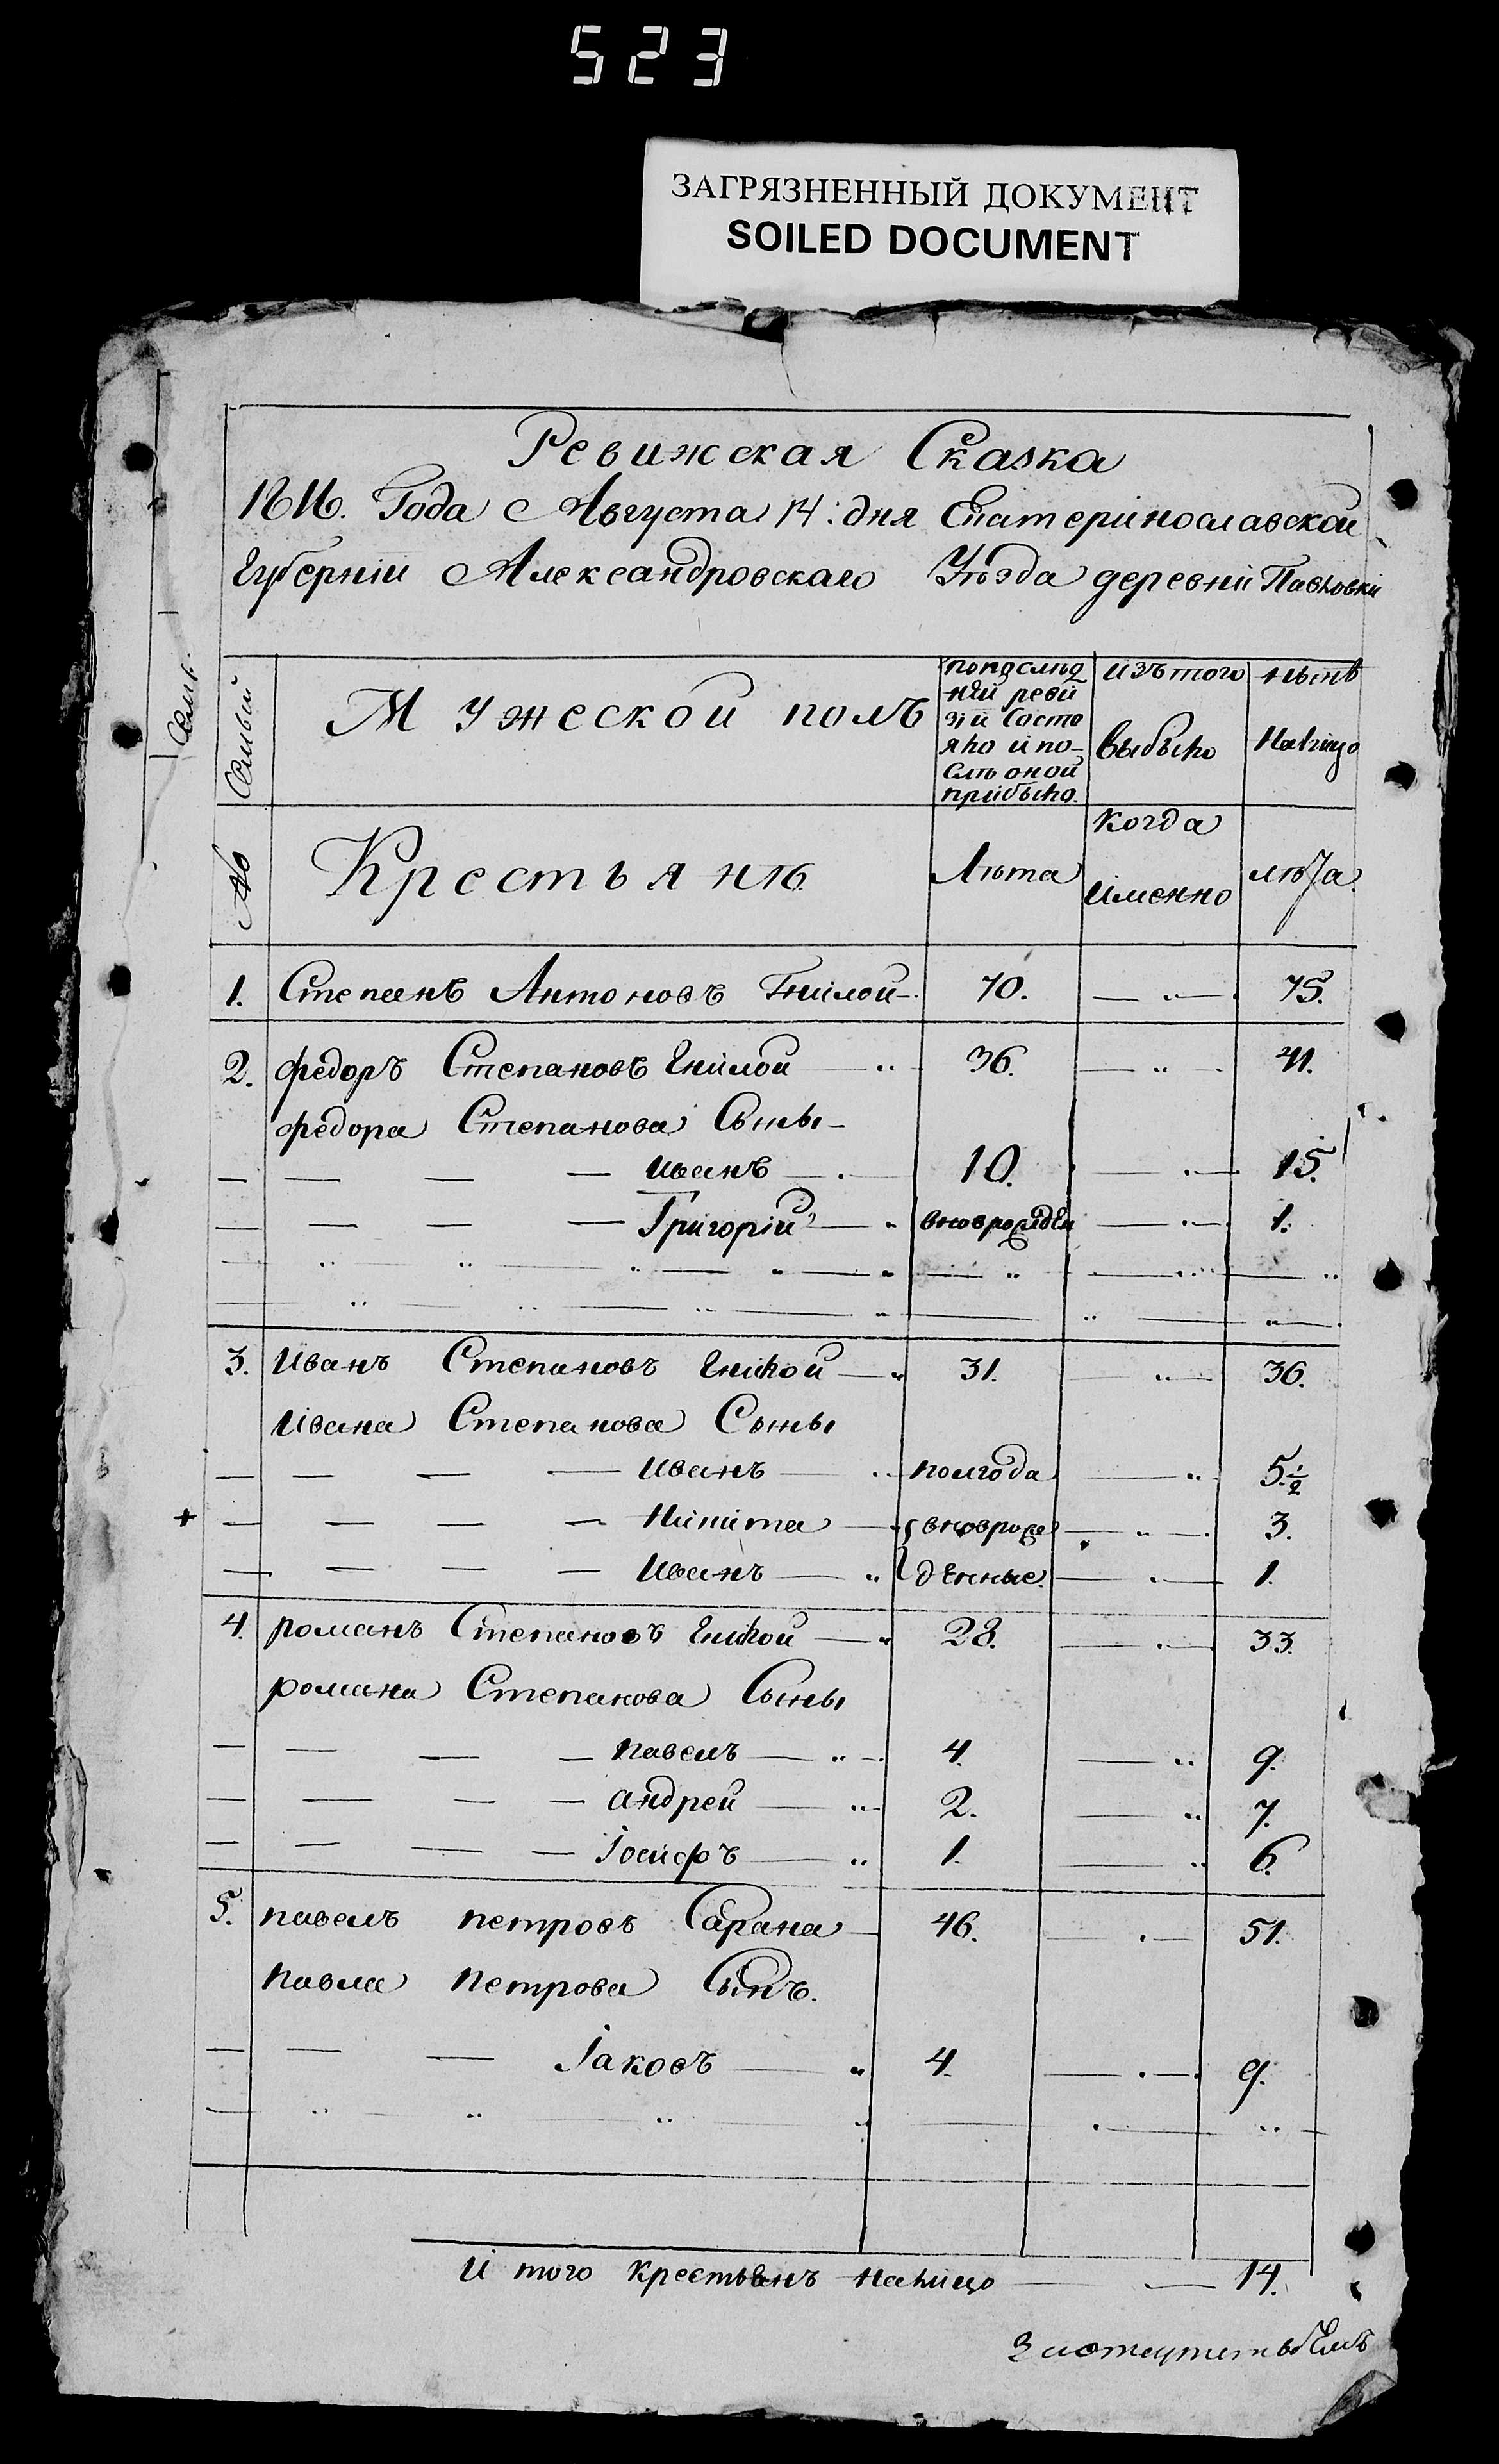 523
ЗАГРЯЗНЕННЫЙ ДОКУМЕНТ
SOILED DOCUMENT
Ревижская Сказка
1816. Года Августа 14: дня Екатеринославской
Губерніи Александровскаго Уѣзда деревни Павловки
Семьи
Мужеской полъ
попослѣд
ній реви
зіи Состо
яло и по-
слѣ оной
прибыло.
изътого
выбыло
нынѣ
Налицо
№
Крестьянѣ
Лѣта
когда
именно
лѣта
1. Степанъ Антоновъ Гнилой 70. — „ — 75.
2. федоръ Степановъ Гнилой — „ 36. — „ — 41.
федора Степанова Сыны —
— — — — Иванъ — 10. — „ — 15.
— — — — Григорій — „ вноврожден — „ — 1.
3. Иванъ Степановъ Гнилой — „ 31. — „ — 36.
Ивана Степанова Сыны
— — — — Иванъ — „ полгода — „ 5 1/2
+ — — — — Никита — вноврож — „ — 3.
— — — — Иванъ — „ денные. — „ — 1.
4. романъ Степановъ Гнилой — „ 28. — „ — 33.
романа Степанова Сыны
— — — — павелъ — „ 4. — „ 9.
— — — — андрей — „ 2. — „ 7.
— — — — Іосифъ — „ 1. — „ 6.
5. павелъ петровъ Сарана — 46. — „ — 51.
павла петрова Сынъ.
— — — Іаковъ — „ 4. — „ — 9.
И того крестьянъ налицо — — 14.